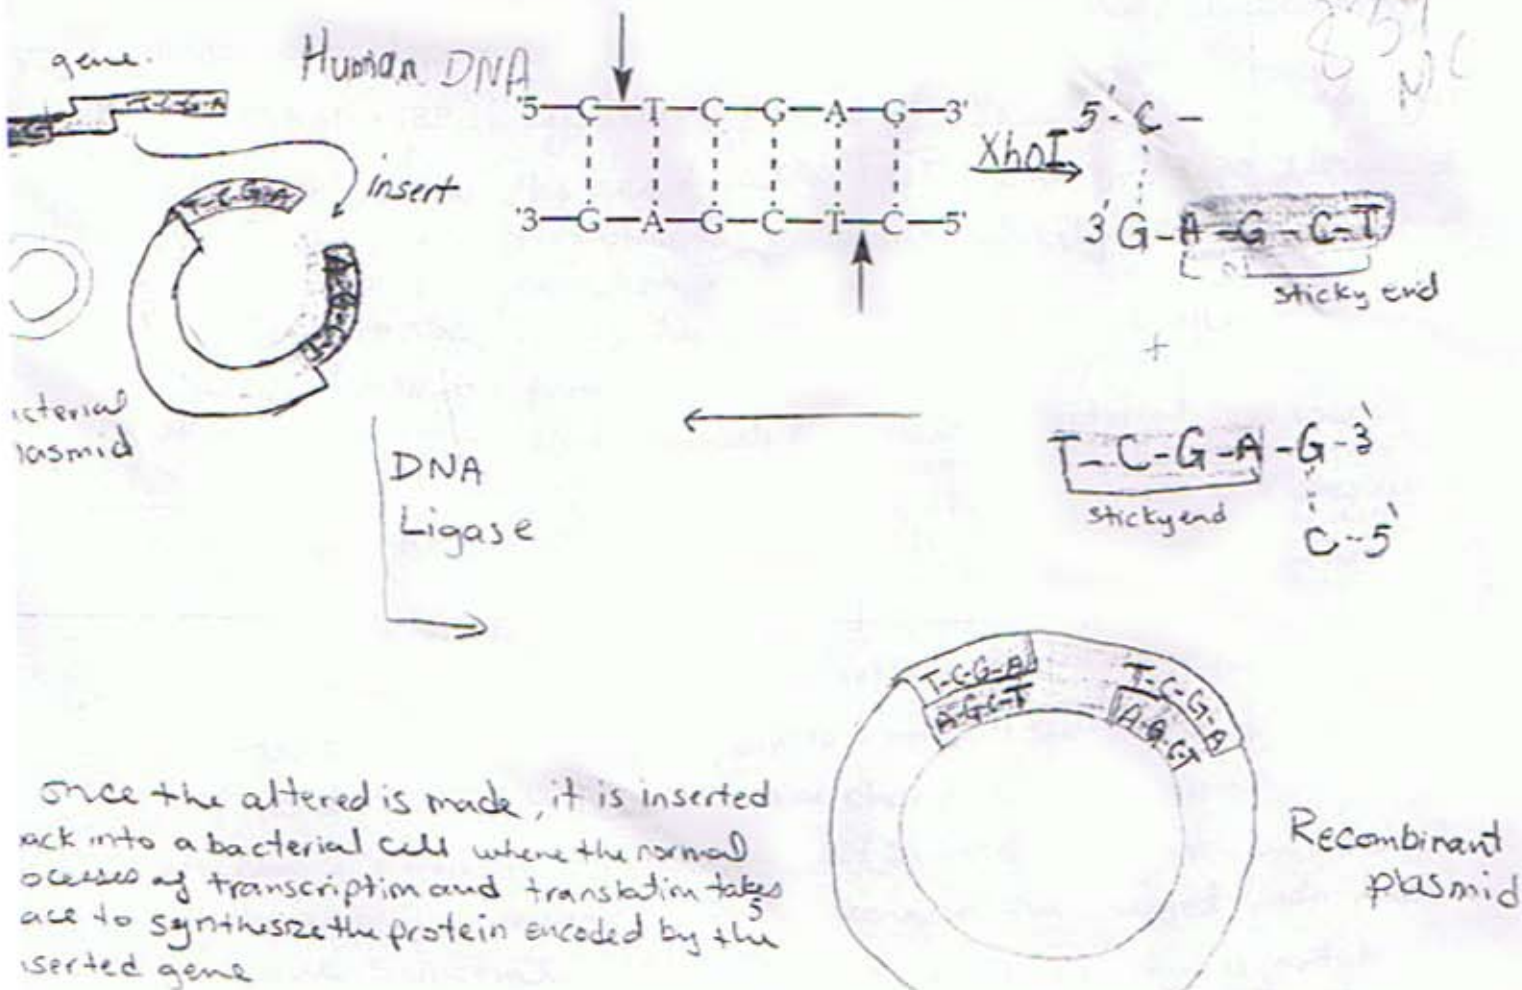 gene.
Human DNA
T-C-G-A
'5—C—T—C—G—A—G—3'
'3—G—A—G—C—T—C—5'
XhoI
5'-C-
3'G-A-G-C-T
sticky end
+
T-C-G-A-G-3'
sticky end
C-5'
insert
T-C-G-A
A-G-C-T
acterial
lasmid
DNA
Ligase
T-C-G-A
A-G-C-T
T-C-G-A
A-G-C-T
Recombinant
plasmid
once the altered is made, it is inserted
ack into a bacterial cell where the normal
ocesses of transcription and translation takes
ace to synthesize the protein encoded by the
serted gene